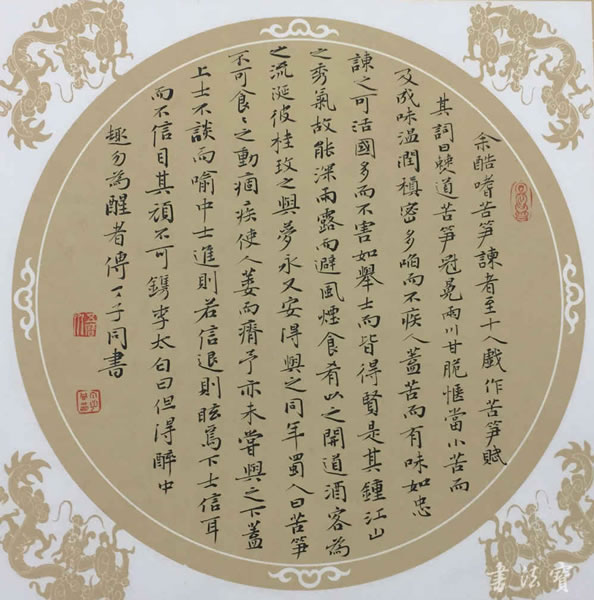 余酷嗜苦笋諫者至十人戲作苦笋賦
其詞曰僰道苦笋冠冕兩川甘脆愜當小苦而
及成味温潤縝密多啗而不疾人蓋苦而有味如忠
諫之可活國多而不害如舉士而皆得賢是其鍾江山
之秀氣故能深雨露而避風煙食肴以之開道酒客為
之流涎彼桂玫之與夢永又安得與之同年蜀人曰苦笋
不可食〻之動痼疾使人萎而瘠予亦未嘗與之下蓋
上士不談而喻中士進則若信退則眩焉下士信耳
而不信目其頑不可鐫李太白曰但得醉中
趣勿為醒者傳 丁子同書
書法寶